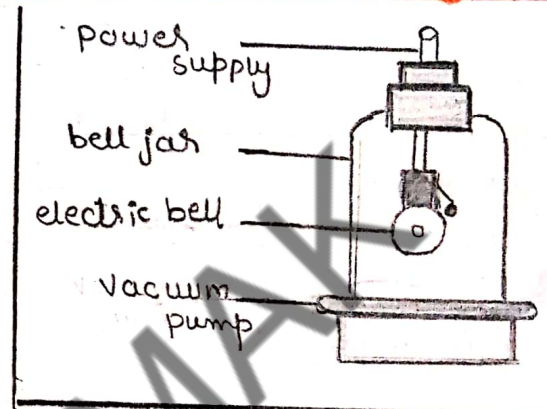 power
supply
bell jar
electric bell
vacuum
pump
MAK